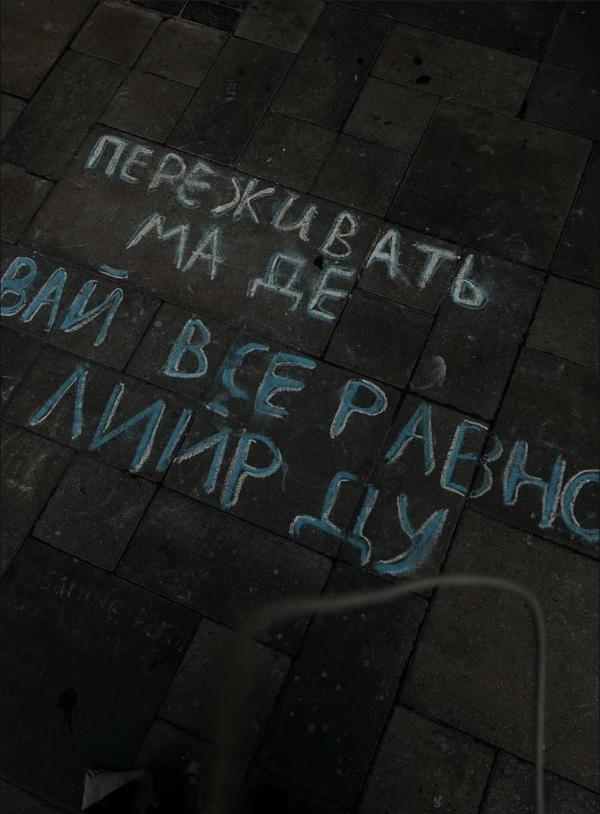 ПЕРЕЖИВАТЬ
МА ДЕ
ВАЙ ВСЕ РАВНО
ЛИЙР ДУ